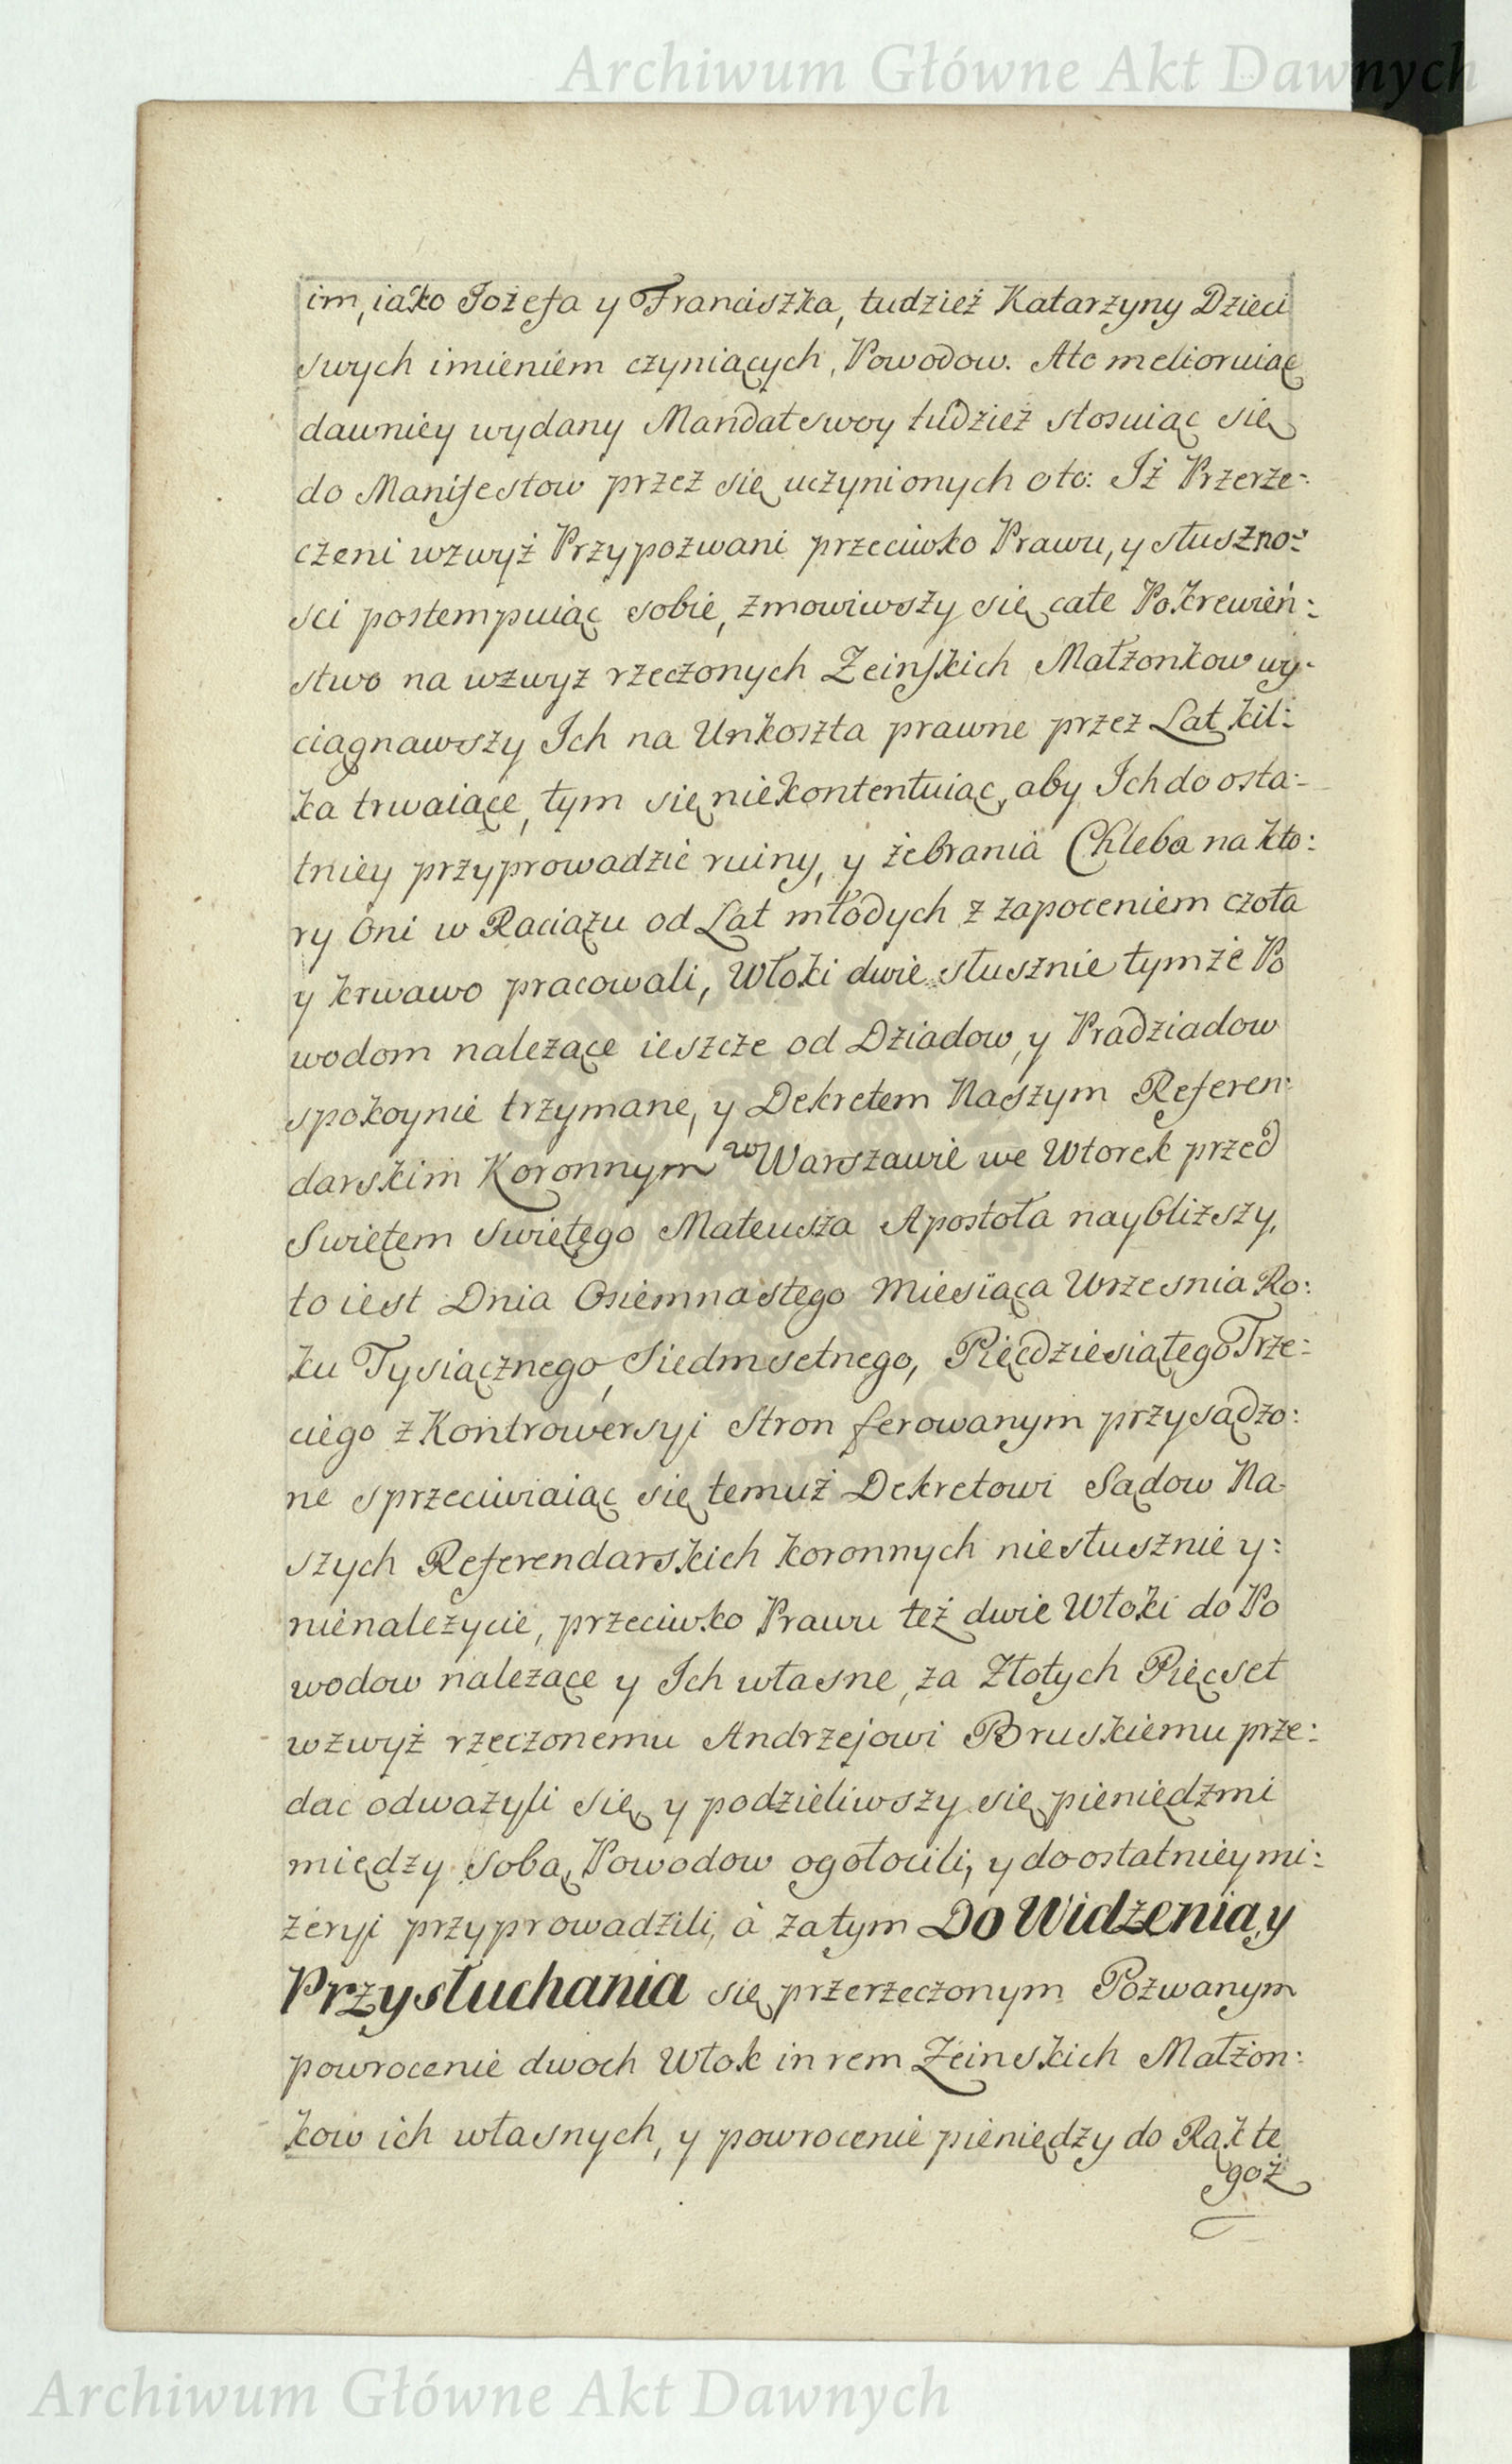 Archiwum Główne Akt Dawnych
im, iako Jozefa y Franciszka, tudzież Katarzyny Dzieci
swych imieniem czyniących, Powodow. Ato melioruiąc
dawniey wydany Mandat swoy tudzież stosuiąc się
do Manifestow przez się uczynionych oto: Iż Przerze-
czeni wzwyż Przypozwani przeciwko Prawu, y słuszno-
sci postempuiąc sobie, zmowiwszy się całe Pokrewień:
stwo na wzwyż rzeczonych Zeinskich Małżonkow wy-
ciągnawszy Ich na Unkoszta prawne przez Lat kil:
ka trwaiące, tym się niekontentuiąc, aby Ich do osta-
tniey przyprowadzić ruiny, y żebrania Chleba na kto:
ry Oni w Raciążu od Lat młodych z zapoceniem czoła
y krwawo pracowali, Włoki dwie słusznie tymże Po
wodom należące ieszcze od Dziadow, y Pradziadow
spokoynie trzymane, y Dekretem Naszym Referen-
darskim Koronnym w Warszawie we Wtorek przed
Swiętem Swiętego Mateusza Apostoła naybliższy,
to iest Dnia Osiemnastego Miesiąca Września Ro:
ku Tysiącznego, Siedmsetnego, Pięcdziesiątego Trze-
ciego z Kontrowersyi Stron ferowanym przysądzo:
ne sprzeciwiaiąc się temuż Dekretowi Sądow Na
szych Referendarskich koronnych niesłusznie y:
nienależycie, przeciwko Prawu też dwie Włoki do Po
wodow należące y Ich własne, za Złotych Pięcset
wzwyż rzeczonemu Andrzejowi Bruskiemu prze:
dac odważyli się, y podzieliwszy się pieniędzmi
między sobą, Powodow ogołocili, y do ostatniey mi:
zeryi przyprowadzili, à zatym Do Widzenia, y
Przysłuchania się przerzeczonym Pozwanym
powrocenie dwoch Włok in rem Zeinskich Małżon:
kow ich własnych, y powrocenie pieniędzy do Rąk te
goż
Archiwum Główne Akt Dawnych